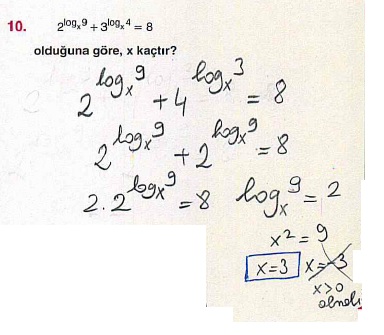 10. 2^{log_x 9} + 3^{log_x 4} = 8
olduğuna göre, x kaçtır?
2^{log_x 9} + 4^{log_x 3} = 8
2^{log_x 9} + 2^{log_x 9} = 8
2 . 2^{log_x 9} = 8 log_x 9 = 2
x² = 9
x = 3 x = -3
x > 0
olmalı